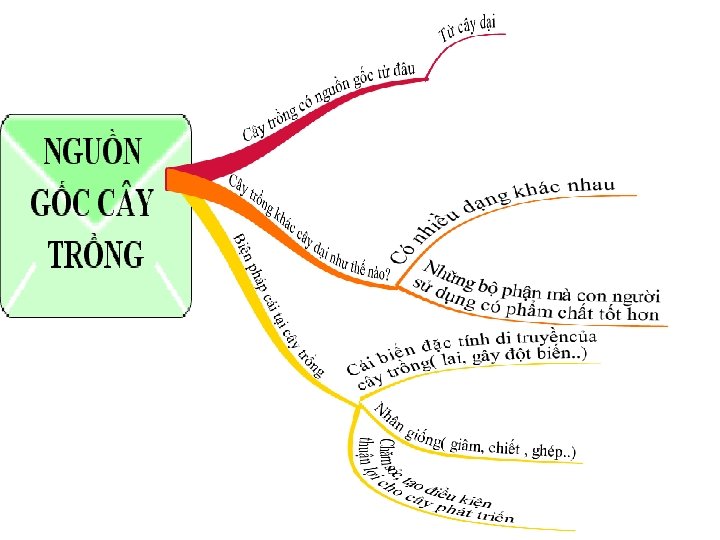 NGUỒN
GỐC CÂY
TRỒNG
Cây trồng có nguồn gốc từ đâu
Từ cây dại
Cây trồng khác cây dại như thế nào?
Có nhiều dạng khác nhau
Những bộ phận mà con người
sử dụng có phẩm chất tốt hơn
Biện pháp cải tại cây trồng
Cải biến đặc tính di truyềncủa
cây trồng( lai, gây đột biến..)
Nhân giống( giâm, chiết , ghép..)
Chăm sóc, tạo điều kiện
thuận lợi cho cây phát triển